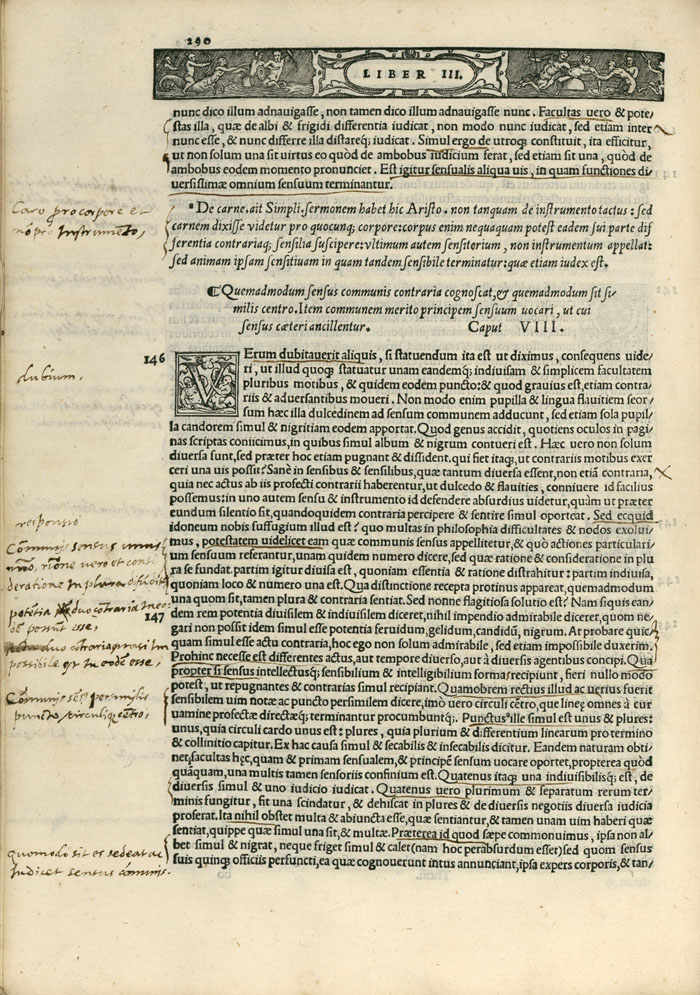 190
LIBER III.
nunc dico illum adnauigasse, non tamen dico illum adnauigasse nunc. Facultas uero & pote/
stas illa, quæ de albi & frigidi differentia iudicat, non modo nunc iudicat, sed etiam inter
nunc esse, & nunc differre illa distareq; iudicat. Simul ergo de utroq; constituit, ita efficitur,
ut non solum una sit uirtus eo quòd de ambobus iudicium ferat, sed etiam sit una, quòd de
ambobus eodem momento pronunciet. Est igitur sensualis aliqua uis, in quam functiones di/
uersissimæ omnium sensuum terminantur.
Caro pro corpore et
nō pro Instrumēto,
ª De carne, ait Simpli. sermonem habet hic Aristo. non tanquam de instrumento tactus : sed
carnem dixisse videtur pro quocunq; corpore: corpus enim nequaquam potest eadem sui parte dif
ferentia contrariaq; sensilia suscipere: vltimum autem sensiterium, non instrumentum appellat:
sed animam ipsam sensitiuam in quam tandem sensibile terminatur: quæ etiam iudex est.
¶ Quemadmodum sensus communis contraria cognoscat, & quemadmodum sit si/
milis centro. Item communem merito principem sensuum uocari, ut cui
sensus cæteri ancillentur. Caput VIII.
146
dubium.
VErum dubitauerit aliquis, si statuendum ita est ut diximus, consequens uide/
ri, ut illud quoq; statuatur unam eandemq; indiuisam & simplicem facultatem
pluribus motibus, & quidem eodem puncto: & quod grauius est, etiam contra/
riis & aduersantibus moueri. Non modo enim pupilla & lingua flauitiem seor/
sum hæc illa dulcedinem ad sensum communem adducunt, sed etiam sola pupil/
la candorem simul & nigritiam eodem apportat. Quod genus accidit, quotiens oculos in pagi/
nas scriptas coniicimus, in quibus simul album & nigrum contueri est. Hæc uero non solum
diuersa sunt, sed præter hoc etiam pugnant & dissident. qui fiet itaq;, ut contrariis motibus exer
ceri una uis possit? Sanè in sensibus & sensilibus, quæ tantum diuersa essent, non etiā contraria,
quia nec actus ab iis profecti contrarii haberentur, ut dulcedo & flauities, conniuere id facilius
possemus: in uno autem sensu & instrumento id defendere absurdius uidetur, quàm ut præter
eundum silentio sit, quandoquidem contraria percipere & sentire simul oporteat. Sed ecquid
responsio
idoneum nobis suffugium illud est? quo multas in philosophia difficultates & nodos exolui/
mus, potestatem uidelicet eam quæ communis sensus appellitetur, & quò actiones particulari
um sensuum referantur, unam quidem numero dicere, sed quæ ratione & consideratione in plu
ra se fundat. partim igitur diuisa est, quoniam essentia & ratione distrahitur : partim indiuisa,
quoniam loco & numero una est. Qua distinctione recepta protinus appareat, quemadmodum
una quom sit, tamen plura & contraria sentiat. Sed nonne flagitiosa solutio est? Nam siquis ean/
147
dem rem potentia diuisilem & indiuisilem diceret, nihil impedio admirabile diceret, quom ne/
gari non possit idem simul esse potentia feruidum, gelidum, candidū, nigrum. At probare quic/
quam simul esse actu contraria, hoc ego non solum admirabile, sed etiam impossibile duxerim.
Prohinc necesse est differentes actus, aut tempore diuerso, aut à diuersis agentibus concipi. Quā
propter si sensus intellectusq; sensibilium & intelligibilium formas recipiunt, fieri nullo modo
potest, ut repugnantes & contrarias simul recipiant. Quamobrem rectius illud ac uerius fuerit
sensibilem uim notæ ac puncto persimilem dicere, imò uero circuli cētro, que lineę omnes à cur
uamine profectæ directæq; terminantur procumbuntq;. Punctus ille simul est unus & plures:
unus, quia circuli cardo unus est: plures, quia plurium & differentium linearum pro termino
& collinitio capitur. Ex hac causa simul & secabilis & insecabilis dicitur. Eandem naturam obti/
net facultas hęc, quam & primam sensualem, & principē sensum uocare oportet, propterea quòd
quāquam, una multis tamen sensoriis confinium est. Quatenus itaq; una indiuisibilisq; est, de
diuersis simul & uno iudicio iudicat. Quatenus uero plurimum & separatum rerum ter/
minis fungitur, fit una scindatur, & dehiscat in plures & de diuersis negotiis diuersa iudicia
proferat. Ita nihil obstet multa & abiuncta esse, quæ sentiantur, & tamen unam uim haberi quæ
sentiat, quippe quæ simul una sit, & multæ. Præterea id quod sæpe commonuimus, ipsa non al/
bet simul & nigrat, neque friget simul & calet (nam hoc perabsurdum esset) sed quom sensus
suis quinq; officiis perfuncti, ea quæ cognouerunt intus annunciant, ipsa expers corporis, & tan/
Cōmunis sensus unus
nūo, rōne uero et consi
deratione In plura diffidit
potētia duo contraria In eo
dē possunt esse,
duo cōtraria actu Im
possibile est In eodē esse,
Cōmunis sēsus persimilis
puncto, circuliq; centro,
quomodo sit et sedeat ac
Iudicet sensus cōmunis.